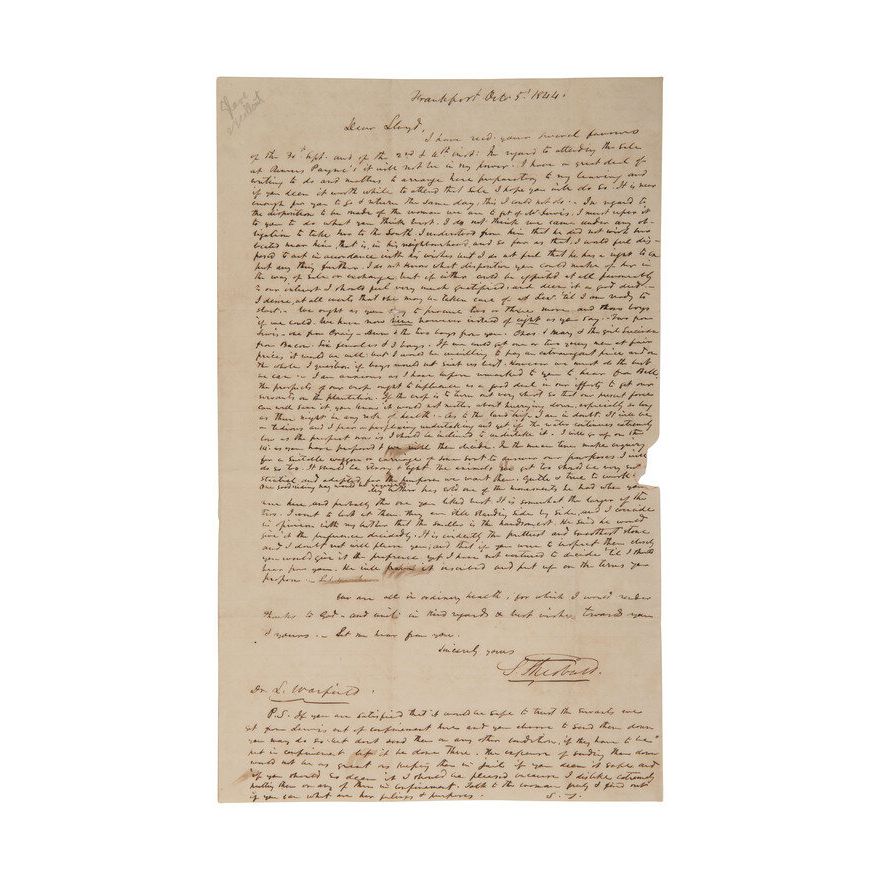 Frankfort Octo. 5th 1844.
Dear Lloyd,
I have recd. your several favours
of the 30th Sept. and of the 2nd & 4th inst: In regard to attending the sale
at Payne's it will not be in my power. I have a great deal of
writing to do and matters to arrange here preparatory to my leaving and
if you deem it worth while to attend that sale I hope you will do so. It is near
enough for you to go & return the same day; this I could not do. In regard to
the disposition to be made of the woman we are to get of Mr Lewis. I must refer it
to you to do what you think best. I do not think we came under any ob-
ligation to take her to the South. I understood from him that he did not wish her
located near him, that is, in his neighbourhood and so far as that, I would feel dis-
posed to act in accordance with his wishes but I do not feel that he has a right to
any thing further. I do not know what disposition you could make of her in
the way of sale or exchange, but if either could be effected at all favourably
to our interest I should feel very much gratified, and deem it a good deed.
I desire, at all events that she may be taken care of at least 'til I am ready to
start. We ought as you say to procure two or three more and those boys
if we could. We have now nine however instead of eight as you say. Two from
Lewis - one from Craig - & the two boys from you. & Mary & the girl
from Bacon. Six females & 3 boys. If we could get one or two young men at fair
prices, it would be well but I would be unwilling to pay an extravagant price and on
the whole I question if boys would not suit us best. However we must do the best
we can. I am anxious as I have before remarked to you to hear from Bell
the prospects of our crop ought to influence us a good deal in our efforts to get our
servants on the plantation. If the crop is to turn out very short so that our present force
can well save it, you know it would not matter about hurrying down, especially so long
as there might be any risk of health. As to the land trip, I am in doubt. It will be
a tedious and I fear a perplexing undertaking and yet if the water continues extremely
low as the prospect now is I should be inclined to undertake it. I will go up on the
14. as you have proposed & we will then decide. In the mean time make enquiry
for a suitable waggon or carriage of some sort to answer our purposes. I will
do so too. It should be strong & light the animals we get too should be very sub-
stantial and adapted for the purpose we want them. Gentle & true to work.
has sold one of the monuments he had when you
were here, and probably the one you liked best. It is somewhat the larger of the
two. I went to look at them. They are still standing side by side, and I coincide
in opinion with my brother that the smaller is the handsomest. He said he would
give it the preference decidedly. It is evidently the prettiest and smoothest stone
and I doubt not will please you; and that if you were to inspect them closely
you would give it the preference yet I have not ventured to decide 'til I should
hear from you. He will have it inscribed and put up on the terms you
propose.
We are all in ordinary health, for which I would render
thanks to God - and unite in kind regards & best wishes towards you
& yours. Let me hear from you.
Sincerely yours
S. Theobald.
Dr. L. Warfield.
P.S. If you are satisfied that it would be safe to trust the servants we
get from Lewis out of confinement here and you choose to send them down
you may do so; but dont send them on any other condition, if they have to be
put in confinement let it be done there. The expense of sending them down
would not be as great as keeping them in jail if you deem it safe, and
if you should so deem it I should be pleased because I dislike extremely
putting them or any of them in confinement. Talk to the woman freely & find out
if you can what are her feelings & purposes. S. T.